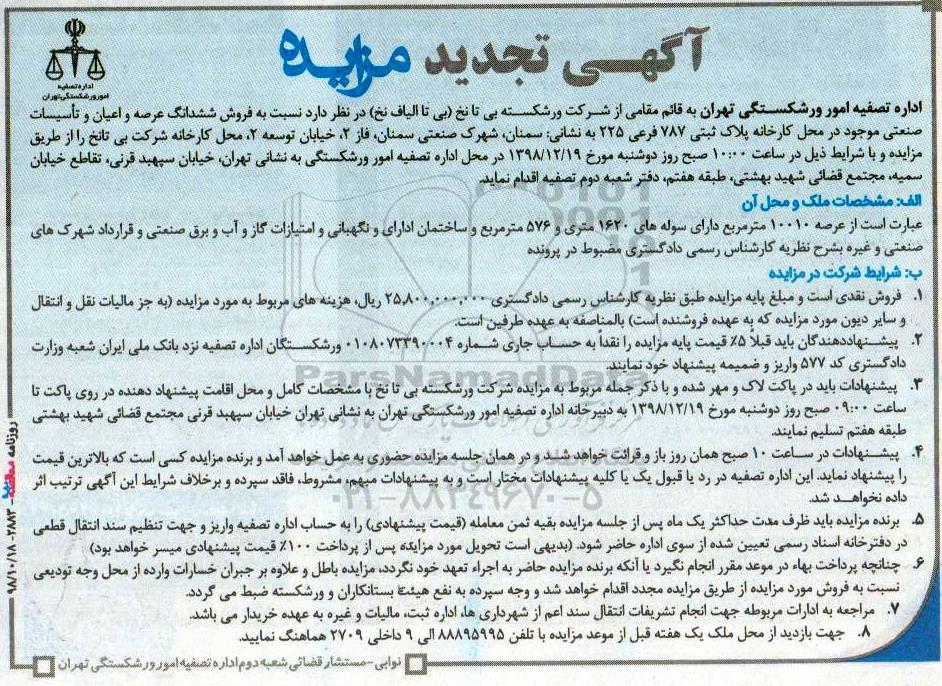 آگهی تجدید مزایده
اداره تصفیه
امور ورشکستگی تهران
اداره تصفیه امور ورشکستگی تهران به قائم مقامی از شرکت ورشکسته بی تا نخ (بی تا الیاف نخ) در نظر دارد نسبت به فروش ششدانگ عرصه و اعیان و تأسیسات
صنعتی موجود در محل کارخانه پلاک ثبتی ۷۸۷ فرعی ۲۲۵ به نشانی: سمنان، شهرک صنعتی سمنان، فاز ۲، خیابان توسعه ۲، محل کارخانه شرکت بی تانخ را از طریق
مزایده و با شرایط ذیل در ساعت ۱۰:۰۰ صبح روز دوشنبه مورخ ۱۳۹۸/۱۲/۱۹ در محل اداره تصفیه امور ورشکستگی به نشانی تهران، خیابان سپهبد قرنی، تقاطع خیابان
سمیه، مجتمع قضائی شهید بهشتی، طبقه هفتم، دفتر شعبه دوم تصفیه اقدام نماید.
الف: مشخصات ملک و محل آن
عبارت است از عرصه ۱۰۰۱۰ مترمربع دارای سوله های ۱۶۲۰ متری و ۵۷۶ مترمربع و ساختمان ادارای و نگهبانی و امتیازات گاز و آب و برق صنعتی و قرارداد شهرک های
صنعتی و غیره بشرح نظریه کارشناس رسمی دادگستری مضبوط در پرونده
ب: شرایط شرکت در مزایده
۱. فروش نقدی است و مبلغ پایه مزایده طبق نظریه کارشناس رسمی دادگستری ۲۵,۸۰۰,۰۰۰,۰۰۰ ریال، هزینه های مربوط به مورد مزایده (به جز مالیات نقل و انتقال
و سایر دیون مورد مزایده که به عهده فروشنده است) بالمناصفه به عهده طرفین است.
۲. پیشنهاددهندگان باید قبلاً ۵٪ قیمت پایه مزایده را نقداً به حساب جاری شماره ۰۱۰۸۰۷۳۳۹۰۰۰۴ ورشکستگان اداره تصفیه نزد بانک ملی ایران شعبه وزارت
دادگستری کد ۵۷۷ واریز و ضمیمه پیشنهاد خود نمایند.
۳. پیشنهادات باید در پاکت لاک و مهر شده و با ذکر جمله مربوط به مزایده شرکت ورشکسته بی تا نخ با مشخصات کامل و محل اقامت پیشنهاد دهنده در روی پاکت تا
ساعت ۰۹:۰۰ صبح روز دوشنبه مورخ ۱۳۹۸/۱۲/۱۹ به دبیرخانه اداره تصفیه امور ورشکستگی تهران به نشانی تهران خیابان سپهبد قرنی مجتمع قضائی شهید بهشتی
طبقه هفتم تسلیم نمایند.
۴. پیشنهادات در ساعت ۱۰ صبح همان روز باز و قرائت خواهد شد و در همان جلسه مزایده حضوری به عمل خواهد آمد و برنده مزایده کسی است که بالاترین قیمت
را پیشنهاد نماید. این اداره تصفیه در رد یا قبول یک یا کلیه پیشنهادات مختار است و به پیشنهادات مبهم، مشروط، فاقد سپرده و برخلاف شرایط این آگهی ترتیب اثر
داده نخواهد شد.
۵. برنده مزایده باید ظرف مدت حداکثر یک ماه پس از جلسه مزایده بقیه ثمن معامله (قیمت پیشنهادی) را به حساب اداره تصفیه واریز و جهت تنظیم سند انتقال قطعی
در دفترخانه اسناد رسمی تعیین شده از سوی اداره حاضر شود. (بدیهی است تحویل مورد مزایده پس از پرداخت ۱۰۰٪ قیمت پیشنهادی میسر خواهد بود)
۶. چنانچه پرداخت بهاء در موعد مقرر انجام نگیرد یا آنکه برنده مزایده حاضر به اجراء تعهد خود نگردد، مزایده باطل و علاوه بر جبران خسارات وارده از محل وجه تودیعی
نسبت به فروش مورد مزایده از طریق مزایده مجدد اقدام خواهد شد و وجه سپرده به نفع هیئت بستانکاران و ورشکسته ضبط می گردد.
۷. مراجعه به ادارات مربوطه جهت انجام تشریفات انتقال سند اعم از شهرداری ها، اداره ثبت، مالیات و غیره به عهده خریدار می باشد.
۸. جهت بازدید از محل ملک یک هفته قبل از موعد مزایده با تلفن ۸۸۸۹۵۹۹۵ الی ۹ داخلی ۲۷۰۹ هماهنگ نمایید.
نوابی-مستشار قضائی شعبه دوم اداره تصفیه امور ورشکستگی تهران
ParsNamadData
۰۲۱-۸۸۳۴۹۶۷۰-۵